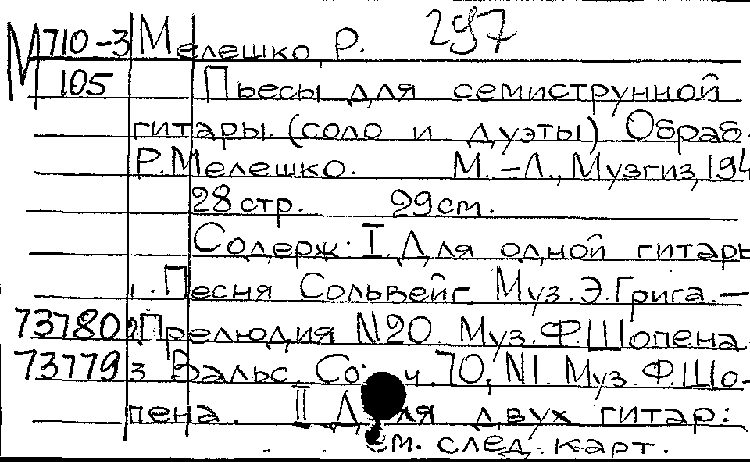 М 710-3 Мелешко Р. 297
105 Пьесы для семиструнной
гитары. (соло и дуэты) Обраб.
Р. Мелешко. М.-Л., Музгиз, 194
28 стр. 29 см.
Содерж: I. Для одной гитары
1. Песня Сольвейг Муз. Э. Грига. —
73780 2. Прелюдия N20 Муз. Ф. Шопена
73779 3 Вальс. Соч. 70, N1. Муз. Ф. Шо-
пена. II Для двух гитар:
см. след. карт.